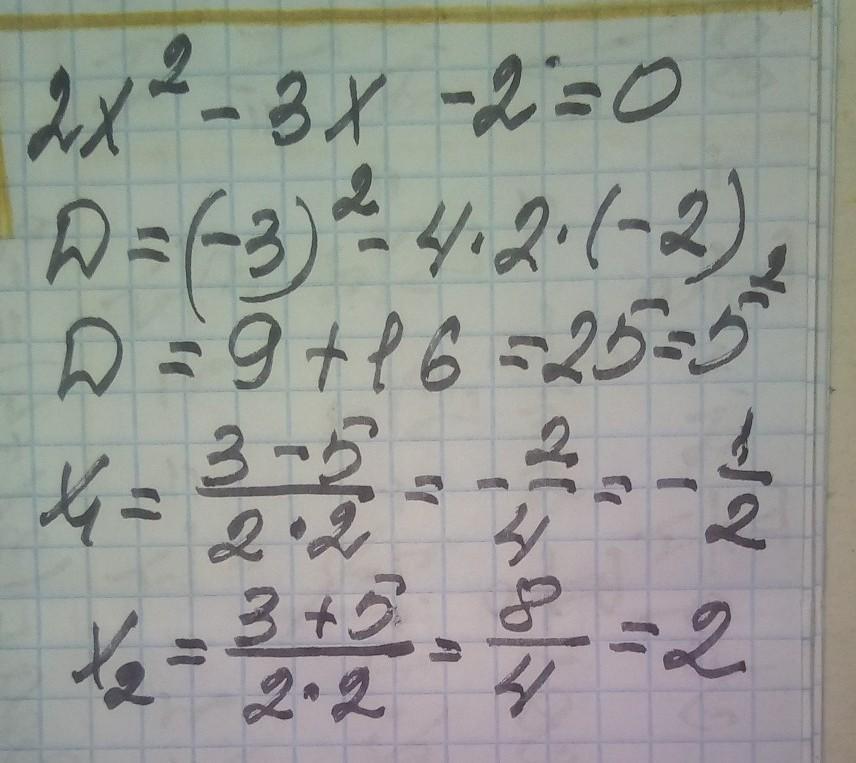 2x² - 3x - 2 = 0
D = (-3)² - 4·2·(-2)
D = 9 + 16 = 25 = 5²
x₁ = (3 - 5)/(2·2) = -2/4 = -1/2
x₂ = (3 + 5)/(2·2) = 8/4 = 2